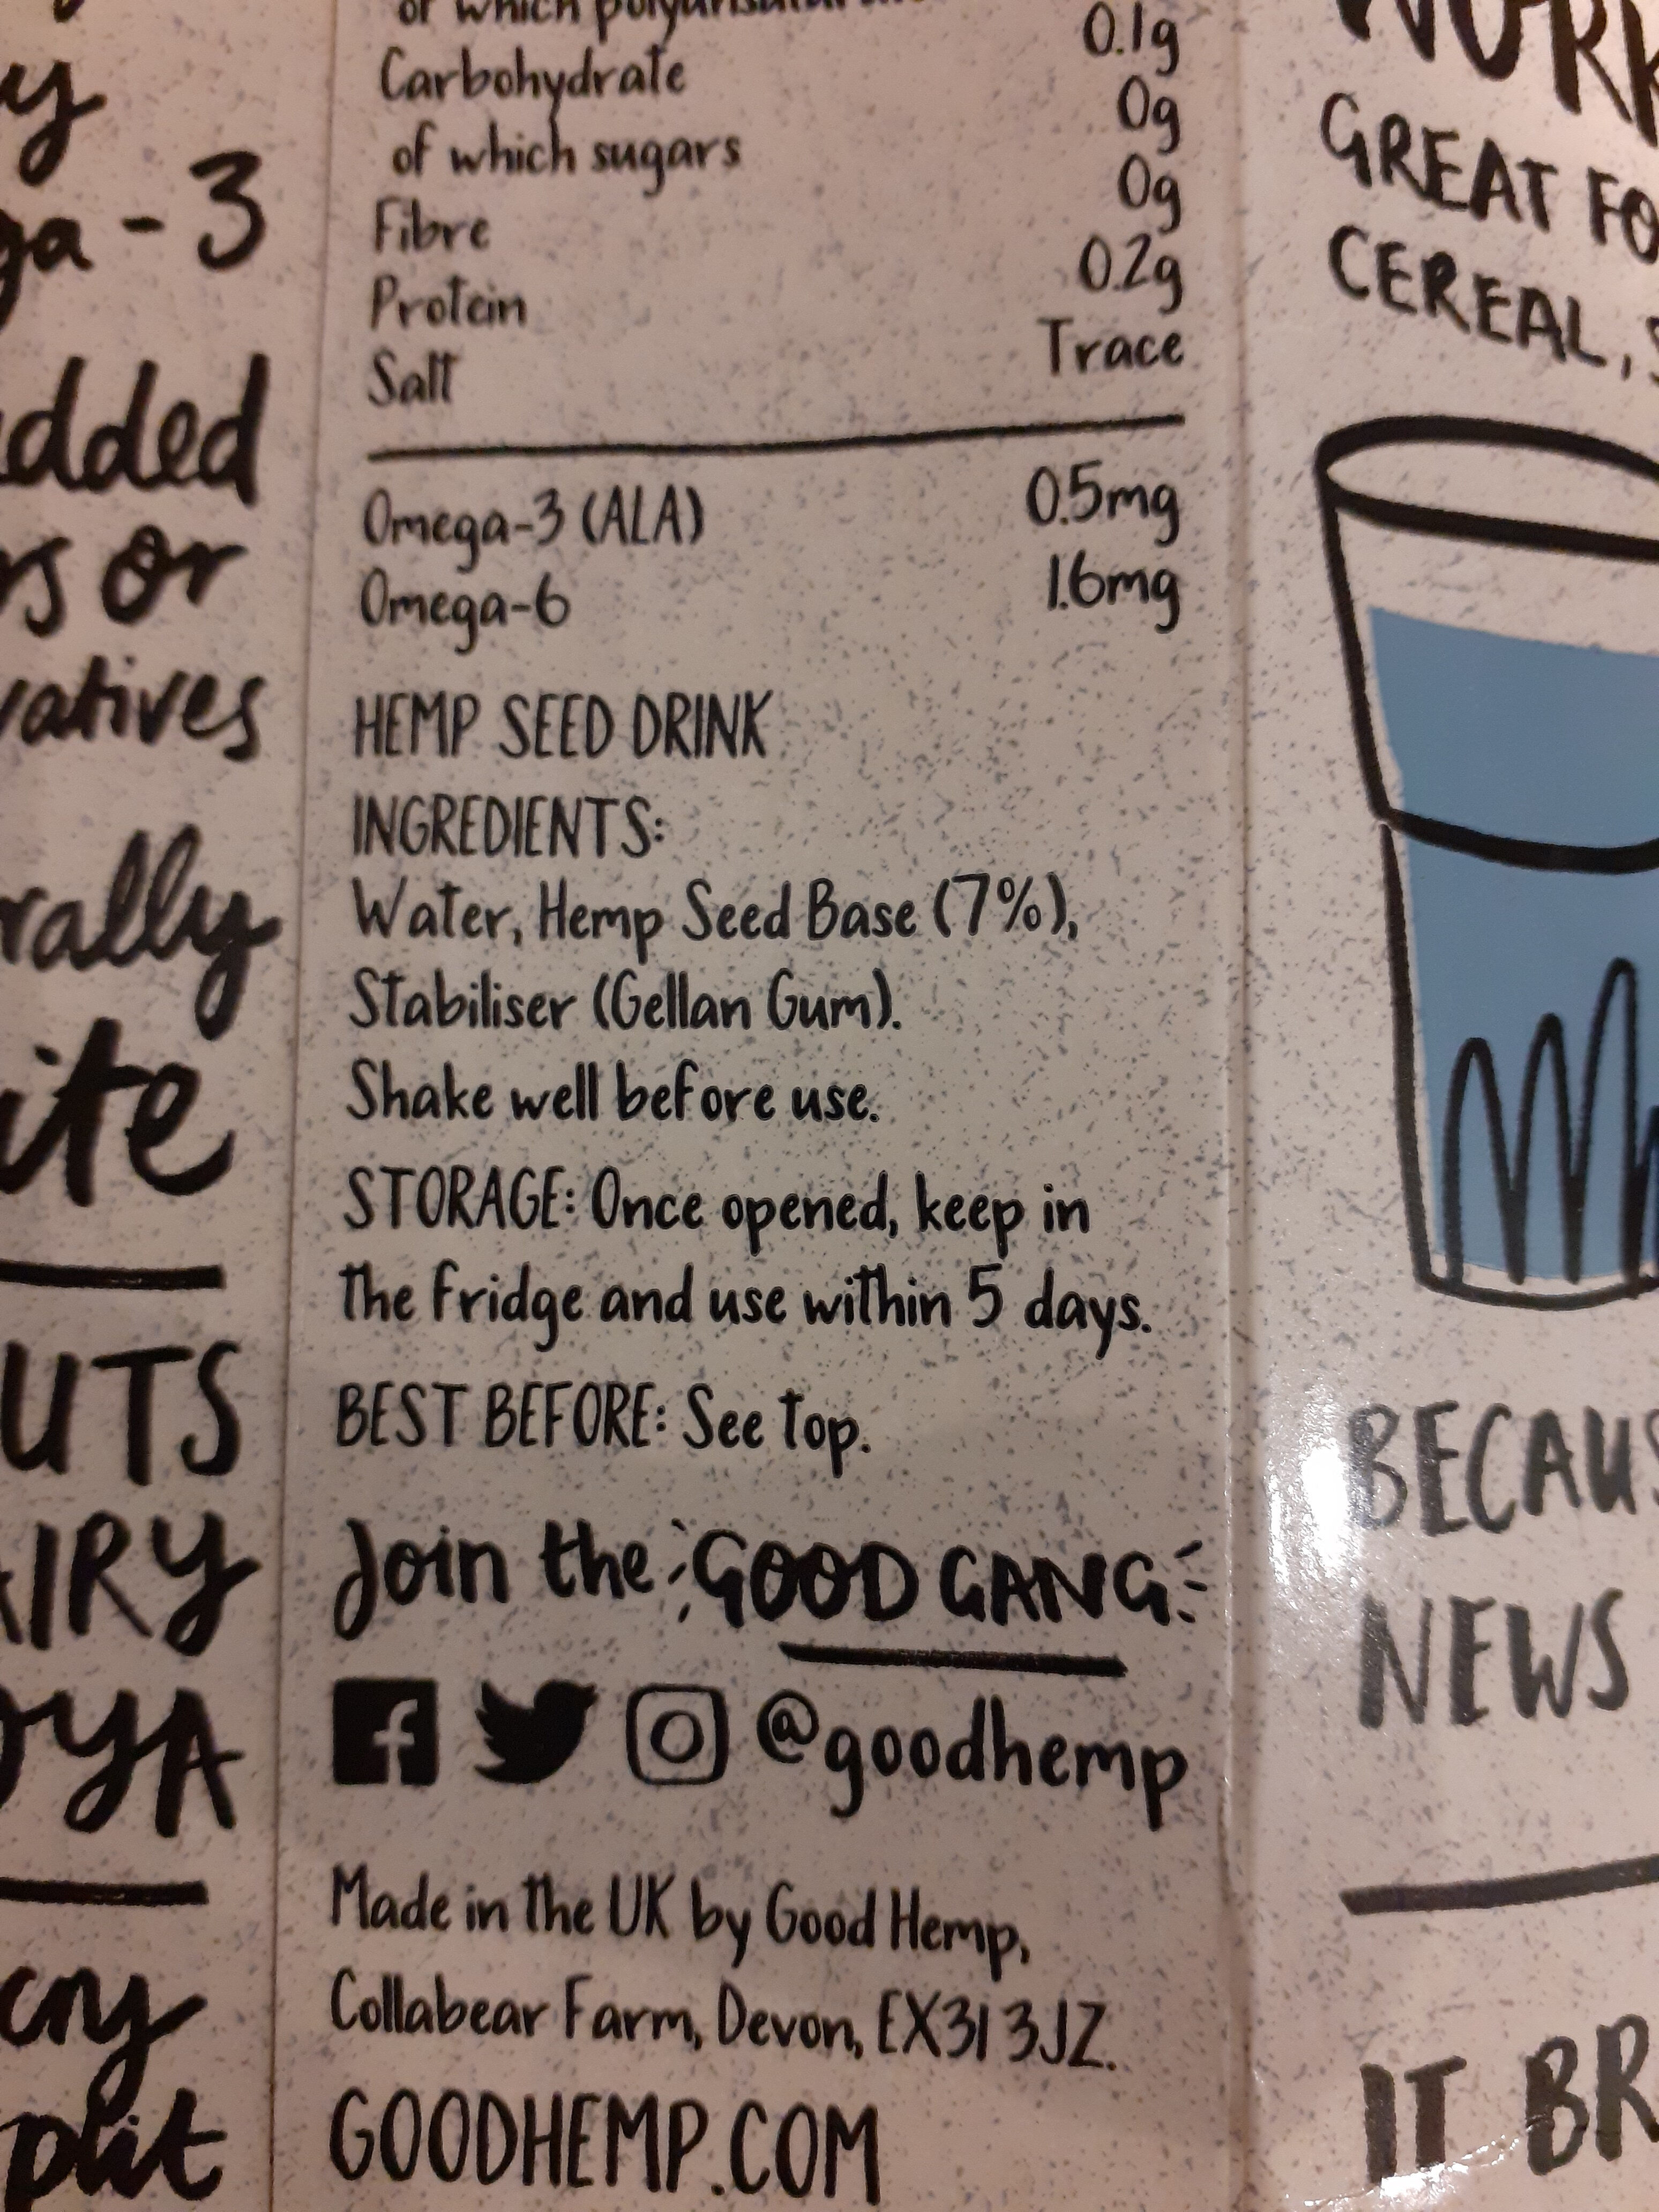 ga-3
dded
s or
vatives
rally
ite
UTS
AIRY
OYA
plit
of which
Carbohydrate 0.1g
of which sugars 0g
Fibre 0g
Protein 0.2g
Salt Trace
Omega-3 (ALA) 0.5mg
Omega-6 1.6mg
HEMP SEED DRINK
INGREDIENTS:
Water, Hemp Seed Base (7%),
Stabiliser (Gellan Gum).
Shake well before use.
STORAGE: Once opened, keep in
the fridge and use within 5 days.
BEST BEFORE: See top.
Join the GOOD GANG
@goodhemp
Made in the UK by Good Hemp,
Collabear Farm, Devon, EX31 3JZ.
GOODHEMP.COM
WORK
GREAT FO
CEREAL, S
BECAUS
NEWS
IT BR